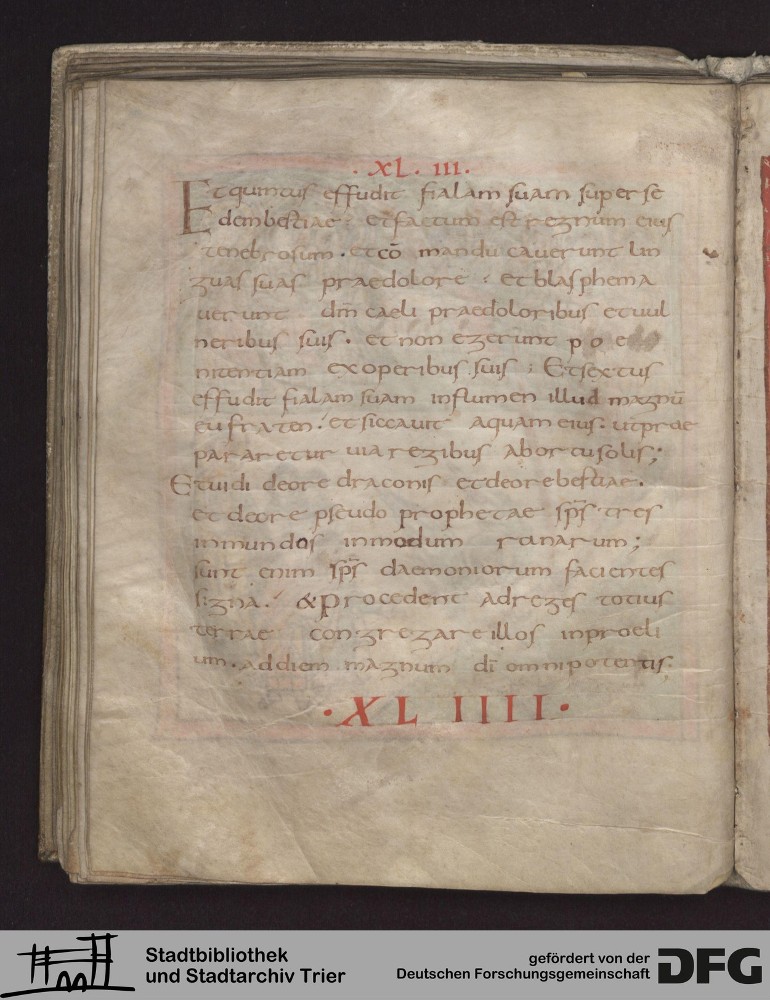 · XL · III ·
Et quintus effudit fialam suam super se
dem bestiae : et factum est regnum eius
tenebrosum · et cō manducaverunt lin
guas suas prae dolore : et blasphema
uerunt dm̄ caeli prae doloribus et uul
neribus suis · et non egerunt poe
nitentiam ex operibus suis : Et sextus
effudit fialam suam in flumen illud magnū
eufraten · et siccauit aquam eius · ut prae
pararetur uia regibus ab ortu solis ;
Et uidi de ore draconis et de ore bestiae ·
et de ore pseudo prophetae sp̄s tres
inmundos in modum ranarum ;
sunt enim sp̄s daemoniorum facientes
signa · & procedent ad reges totius
terrae congregare illos in proeli
um · ad diem magnum dī omnipotentis :
· XL IIII ·
Stadtbibliothek
und Stadtarchiv Trier
gefördert von der
Deutschen Forschungsgemeinschaft
DFG